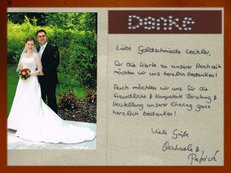 Danke
Liebe Goldschmiede Lechler,
für die Karte zu unserer Hochzeit
möchten wir uns herzlich bedanken!
Auch möchten wir uns für die
freundliche & kompetente Beratung &
Herstellung unserer Eheringe ganz
herzlich bedanken!
Viele Grüße
&
Patrick